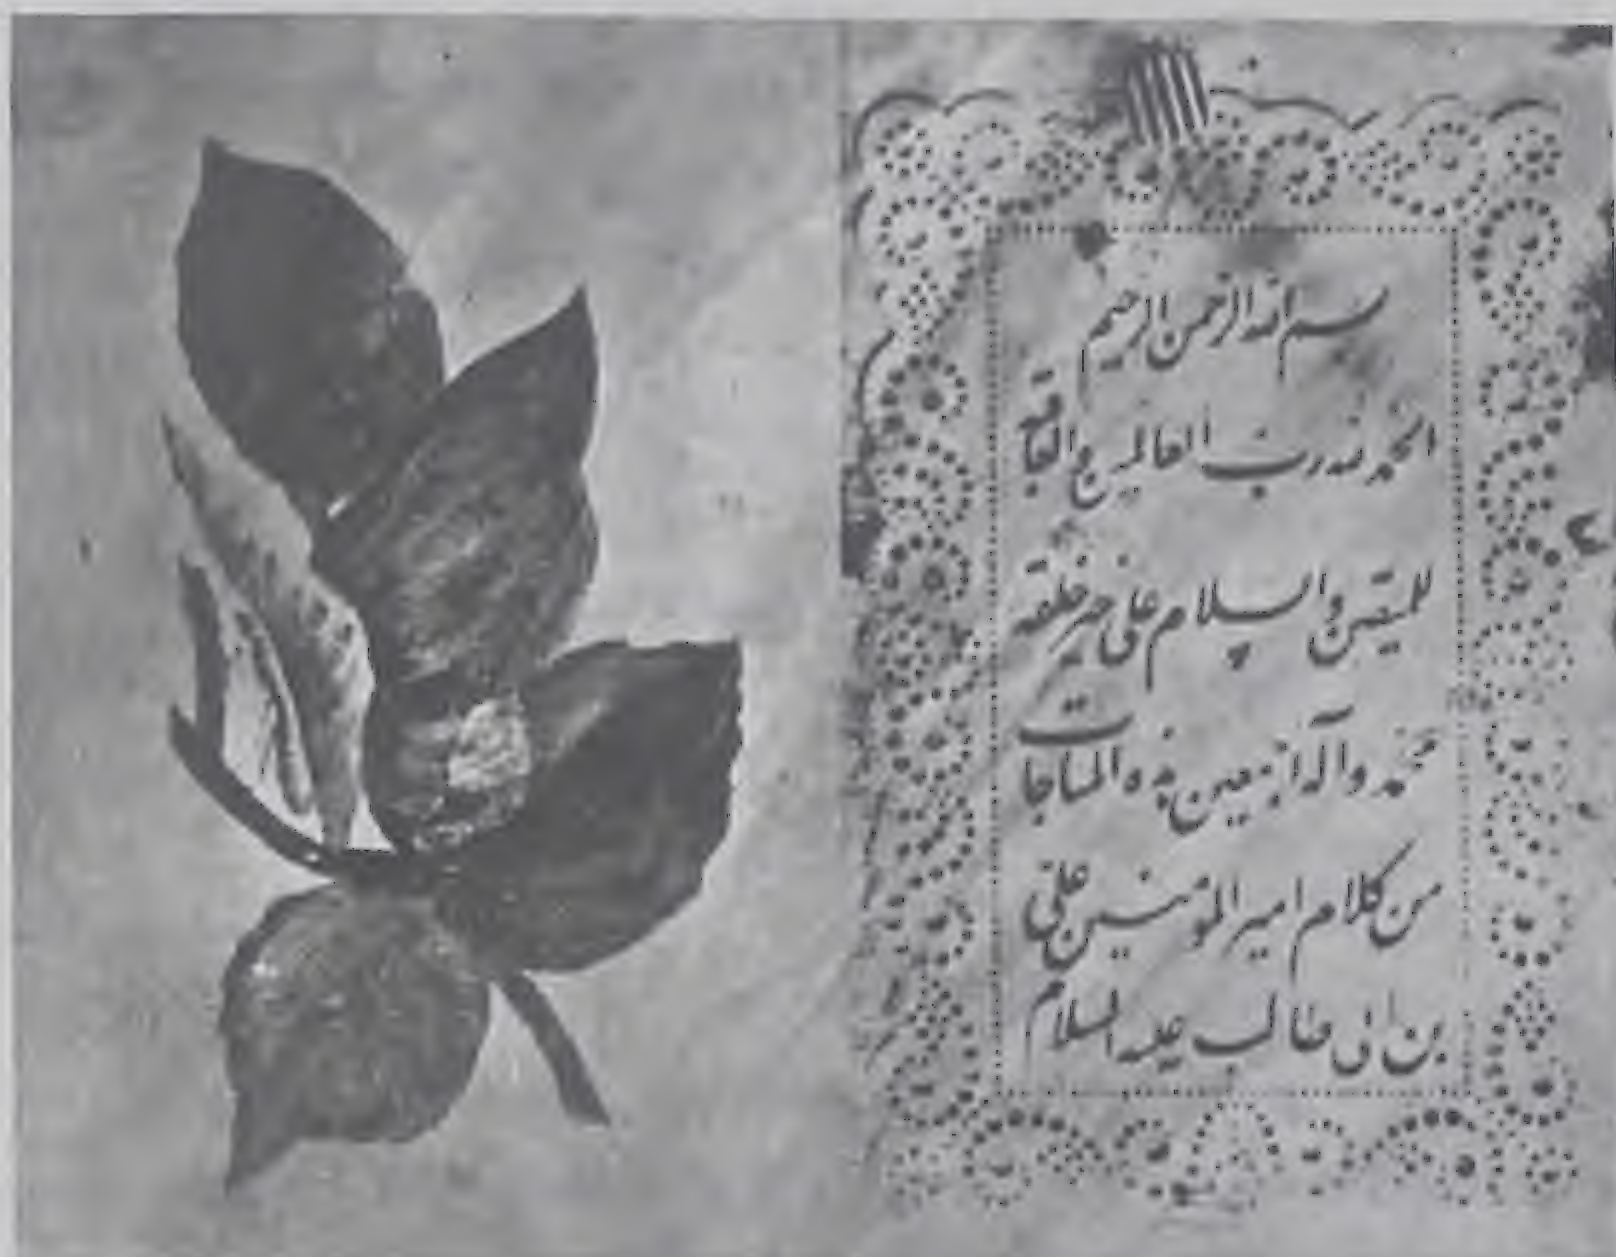 بسم الله الرحمن الرحیم
الحمد لله رب العالمین والعاقبة
للمتقین والسلام علی خیر خلقه
محمد وآله اجمعین هذه المناجات
من کلام امیر المؤمنین علی
بن ابی طالب علیه السلام